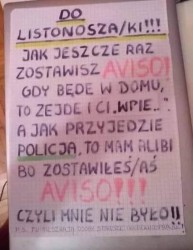 DO
LISTONOSZA/KI!!!
JAK JESZCZE RAZ
ZOSTAWISZ AVISO!
GDY BĘDE W DOMU,
TO ZEJDE I CI „WPIE..."
A JAK PRZYJEDZIE
POLICJA, TO MAM ALIBI
BO ZOSTAWIŁEŚ/AŚ
AVISO!!!
CZYLI MNIE NIE BYŁO!!